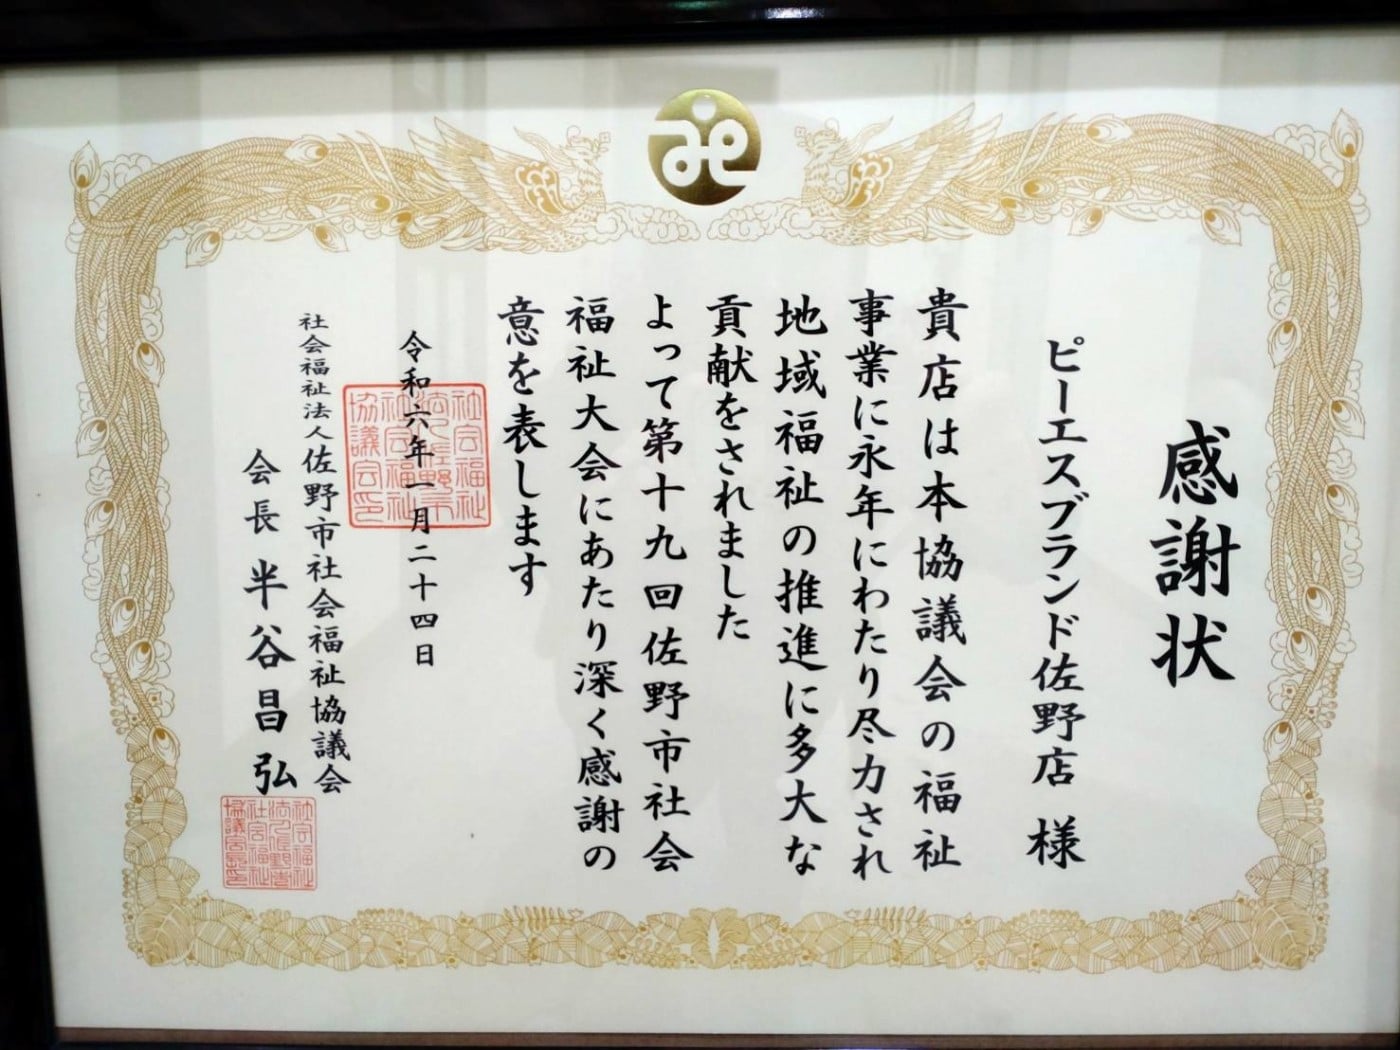 感謝状
ピーエスブランド佐野店 様
貴店は本協議会の福祉
事業に永年にわたり尽力され
地域福祉の推進に多大な
貢献をされました
よって第十九回佐野市社会
福祉大会にあたり深く感謝の
意を表します
令和六年一月二十四日
社会福祉法人佐野市社会福祉協議会
会長 半谷昌弘